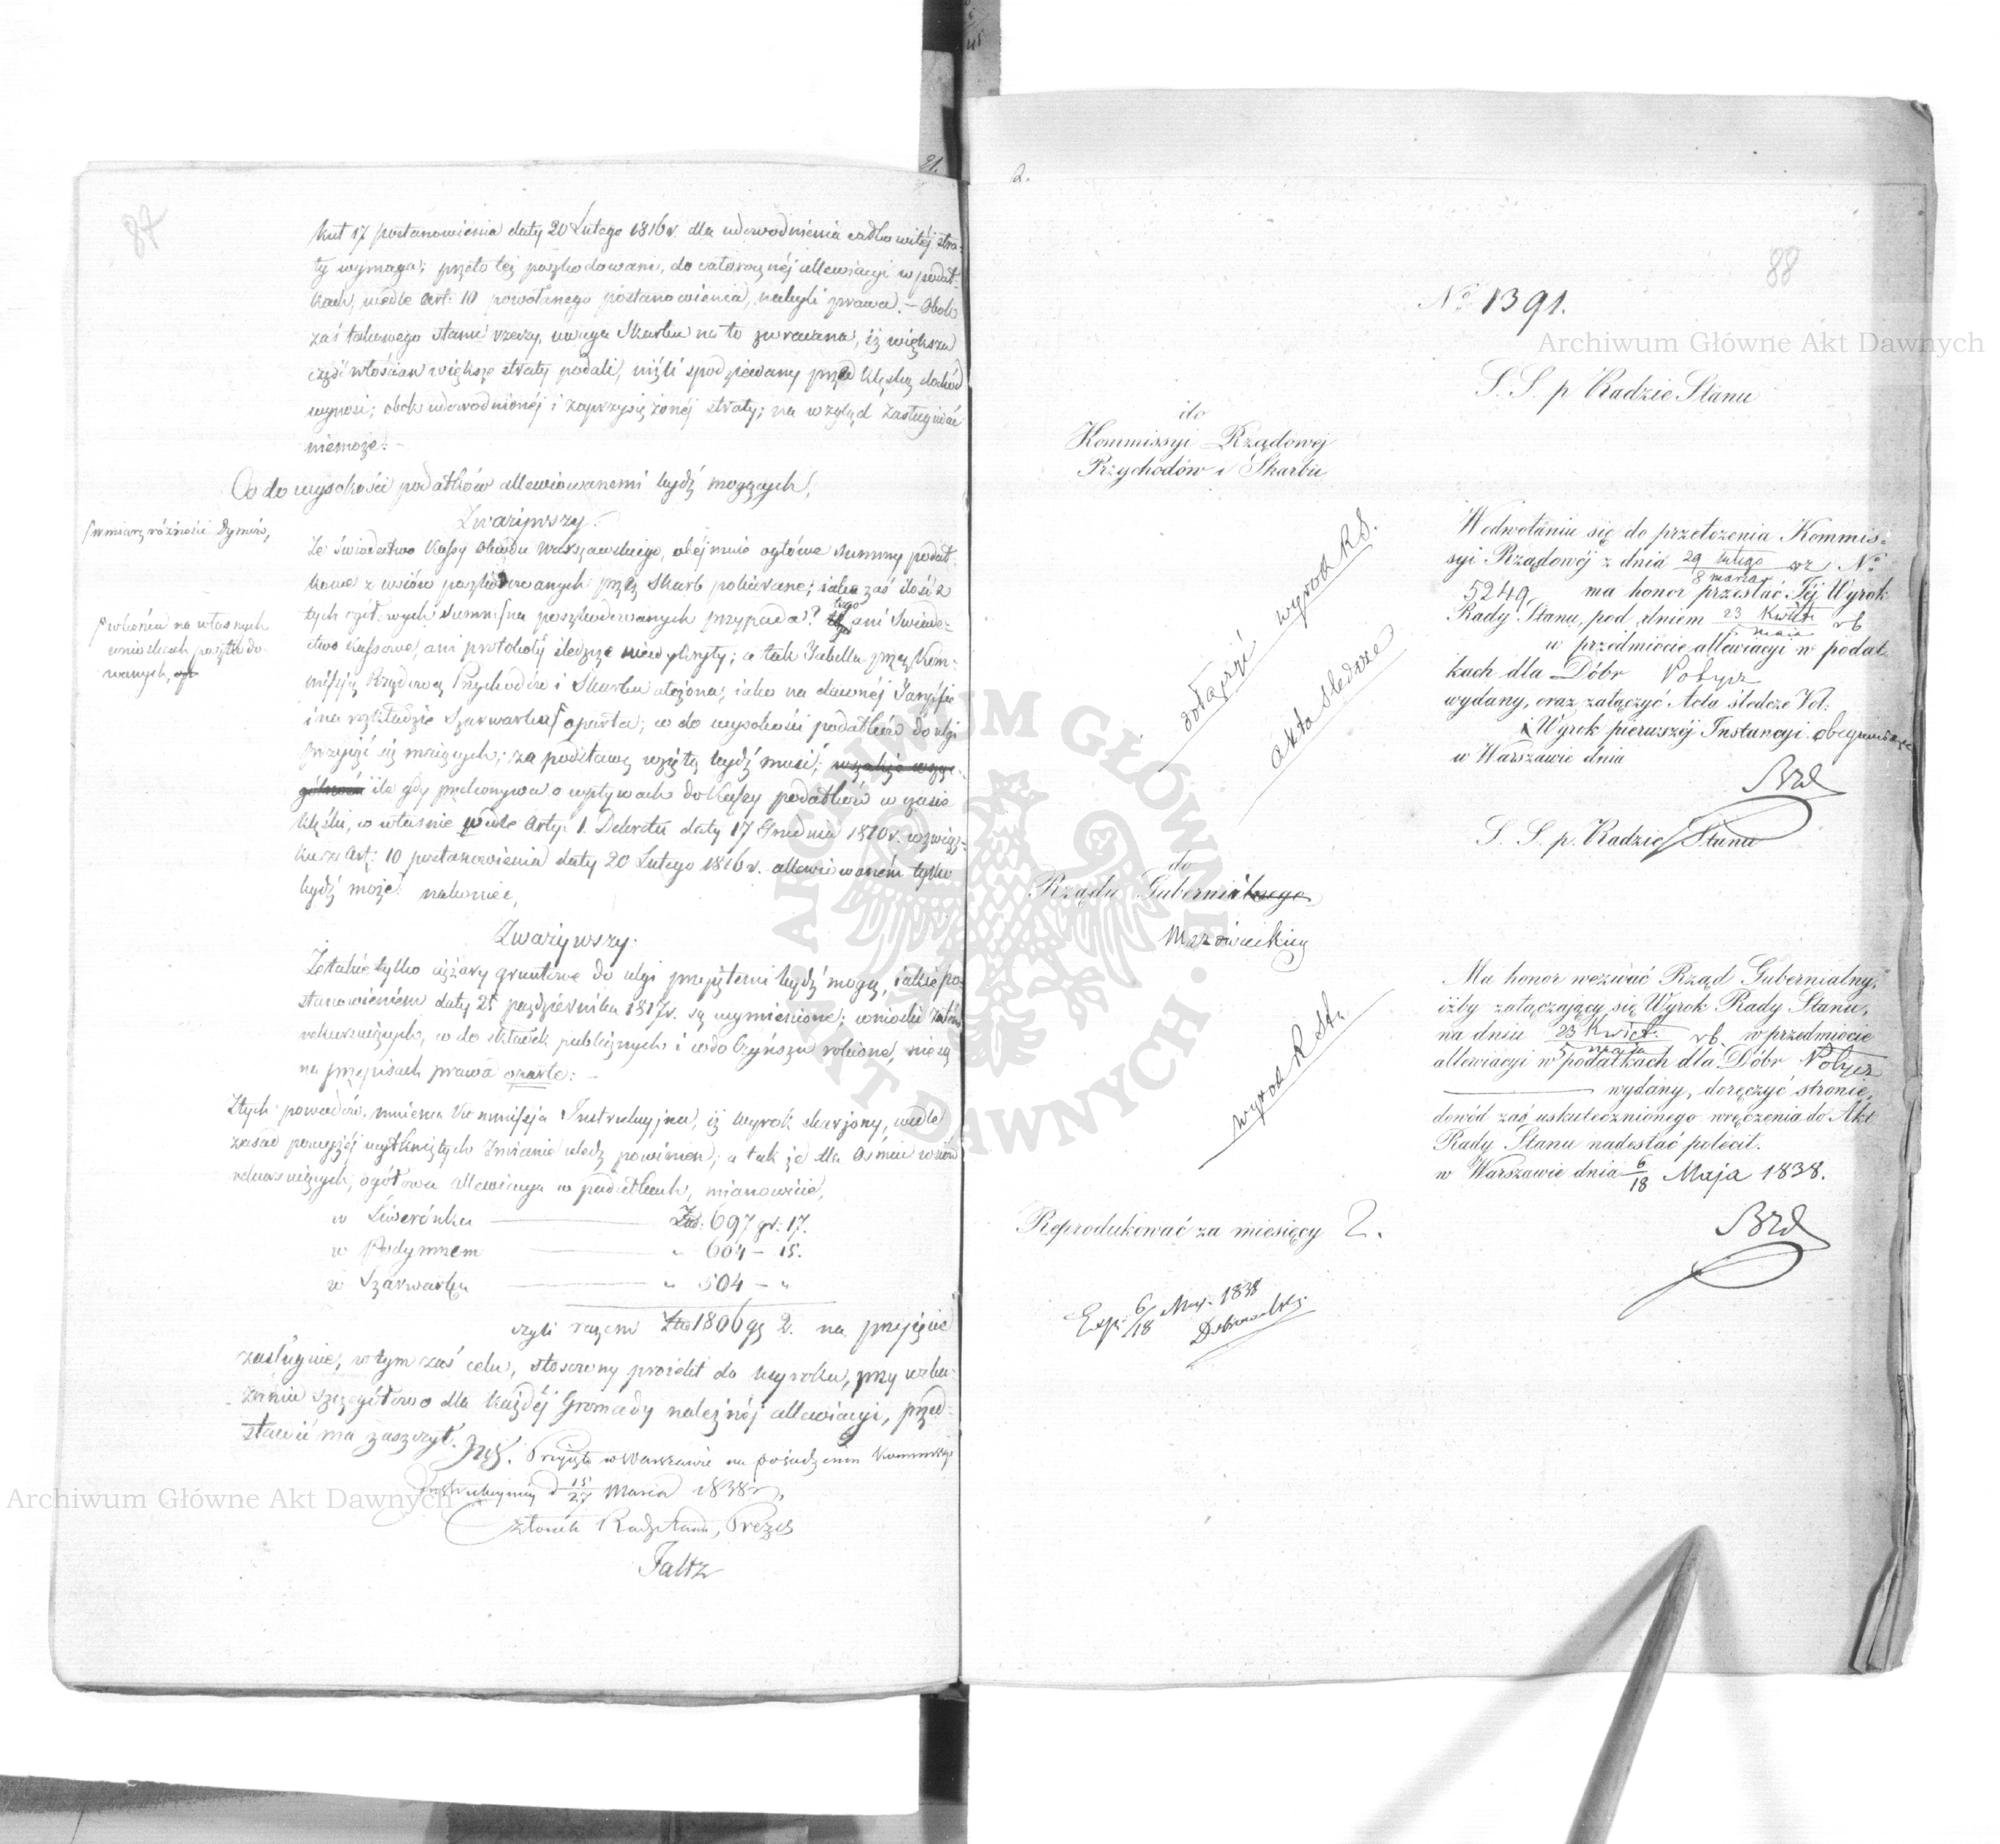 87
kuł 17 postanowienia daty 20 Lutego 1816 r. dla udowodnienia całkowitéj stra-
ty wymaga; przeto też poszkodowani, do całorocznéj allewiacyi w podat-
kach, wedle Art: 10 powołanego postanowienia, nabyli prawa. – Obok
zaś takowego stanu rzeczy, uwaga Skarbu na to zwracana, iż większa
część włościan większe straty podali, niżli spodziewany przed klęską dochód
wynosi; obok udowodnionéj i zaprzysiężonéj straty; na wzgląd zasługiwać
niemoże. –
Co do wysokości podatków allewiowanemi bydź mogących,
Zważywszy.
Że świadectwo Kassy Obwodu Warszawskiego, obéjmuie ogółowe summy podat-
kowe z wsiów poszkodowanych przez Skarb pobierane; iaka zaś ilość z
tych ogółowych summ na poszkodowanych przypada? tego ani Świade-
ctwo Kassowe, ani protokóły śledcze niewykryły; a tak Tabella przez Kom-
missyią Rządową Przychodów i Skarbu ułożona, iako na dawnéj Taryffie
i na rozkładzie Szarwarku oparta; co do wysokości podatków do ulgi
przyiąść się maiących; za podstawę wziętą bydź musi;
ile gdy przekonywa o wpływach do Kassy podatków w czasie
klęski, co właśnie wedle Arty: 1. Dekretu daty 17 Grudnia 1810 r. w związ-
ku z Art: 10 postanowienia daty 20 Lutego 1816 r. allewiowaném tylko
bydź może: nakoniec,
Zważywszy.
Że takie tylko ciężary gruntowe do ulgi przyjętemi bydź mogą, iakie po-
stanowieniem daty 25 października 1817 r. są wymienione; wnioski zatém
rekursuiących, co do składek publicznych i co do Czynszu robione, nie są
na przepisach prawa oparte: –
Z tych powodów mniema Kommissja Instrukcyjna, iż wyrok skarżony, wedle
zasad powyżéj wytkniętych zmianie uledz powinien; a tak że dla Ośmiu wsiów
rekursuiących, ogółowa allewiacya w podatkach, mianowicie,
w Liwerónku Złp: 697 gr: 17.
w Podymnem " 604 – 15.
w Szarwarku " 504 – "
czyli razem Złp 1806 gr 2. na przyjęcie
zasługuie, w tym zaś celu, stosowny proiekt do wyroku, przy wska-
zaniu szczegółowo dla każdéj Gromady należnéj allewiacyi, przed-
stawić ma zaszczyt. Przyjęto w Warszawie na posiedzeniu Kommissyi
Instrukcyjnéj d 15/27 Marca 1838 r,
Członek Rady Stanu, Prezes
Faltz
w miarę różności Dymów,
na własnych
wnioskach poszkodo-
wanych,
2.
88
No 1391.
S. S. p Radzie Stanu
do
Kommissyi Rządowej
Przychodów i Skarbu
dołączyć wyrok RS.
akta śledcze
W odwołaniu się do przełożenia Kommis-
syi Rządowéj z dnia 29 lutego / 8 marca No
5249, ma honor przesłać Jéj Wyrok
Rady Stanu, pod dniem 23 kwiet. / 5 maja rb
w przedmiocie allewiacyi w podat-
kach dla Dóbr Potycz
wydany, oraz załączyć Acta śledcze Vol:
i Wyrok pierwszéj Instancyi obeymujące
w Warszawie dnia
S. S. p. Radzie Stanu
do
Rządu Gubernialnego
Mazowieckiego
wyrok R Stu
Ma honor wezwać Rząd Gubernialny,
iżby załączający się Wyrok Rady Stanu,
na dniu 23 kwiet. / 5 maja rb. w przedmiocie
allewiacyi w podatkach dla Dóbr Potycz
wydany, doręczyć stronie,
dowód zaś uskutecznionego wręczenia do Akt
Rady Stanu nadesłać polecił.
w Warszawie dnia 6/18 Maja 1838.
Reprodukować za miesięcy 2.
Exp: 6/18 Maja 1838
Archiwum Główne Akt Dawnych
Archiwum Główne Akt Dawnych
ARCHIWUM GŁÓWNE AKT DAWNYCH